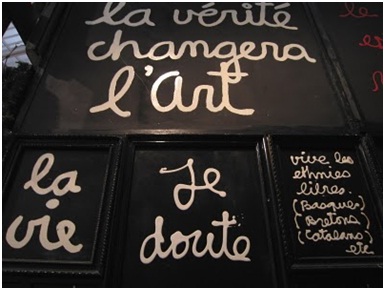 la vérité
changera
l'art
la
vie
Je
doute
vive les
ethnies
libres.
(Basques)
(Bretons)
(Catalans)
etc